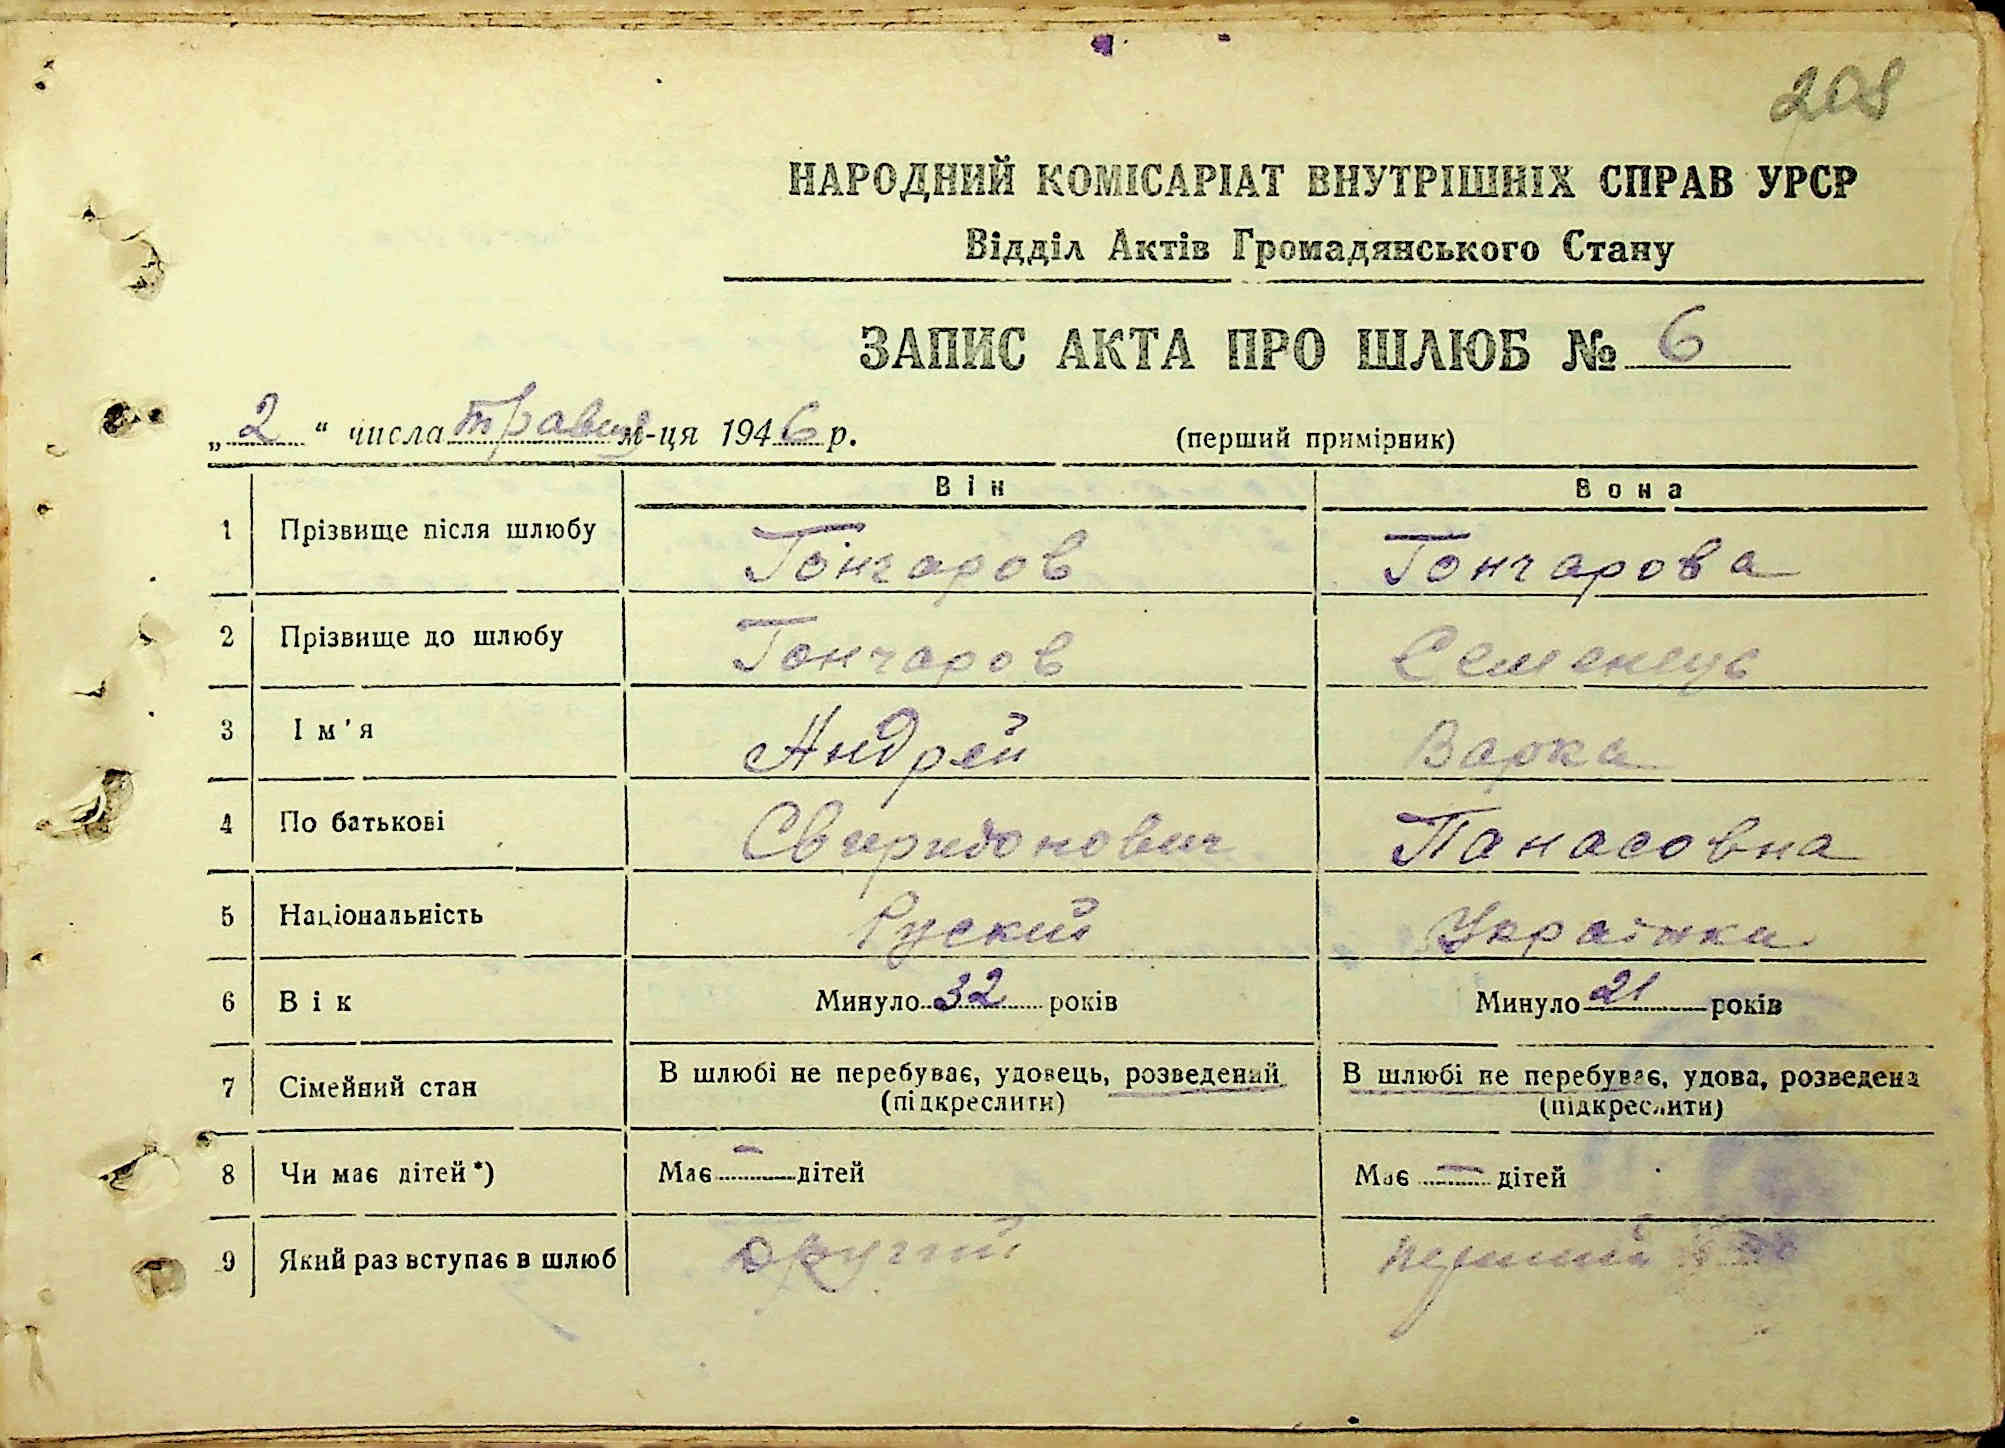 208
НАРОДНИЙ КОМІСАРІАТ ВНУТРІШНІХ СПРАВ УРСР
Відділ Актів Громадянського Стану
ЗАПИС АКТА ПРО ШЛЮБ № 6
„2“ числа травня м-ця 1946 р. (перший примірник)
Він Вона
1 Прізвище після шлюбу Гончаров Гончарова
2 Прізвище до шлюбу Гончаров
3 Ім'я Андрей Варка
4 По батькові Свиридонович Панасовна
5 Національність Руский Українка
6 Вік Минуло 32 років Минуло 21 років
7 Сімейний стан В шлюбі не перебуває, удовець, розведений (підкреслити) В шлюбі не перебуває, удова, розведена (підкреслити)
8 Чи має дітей*) Має — дітей Має — дітей
9 Який раз вступає в шлюб Другий первий